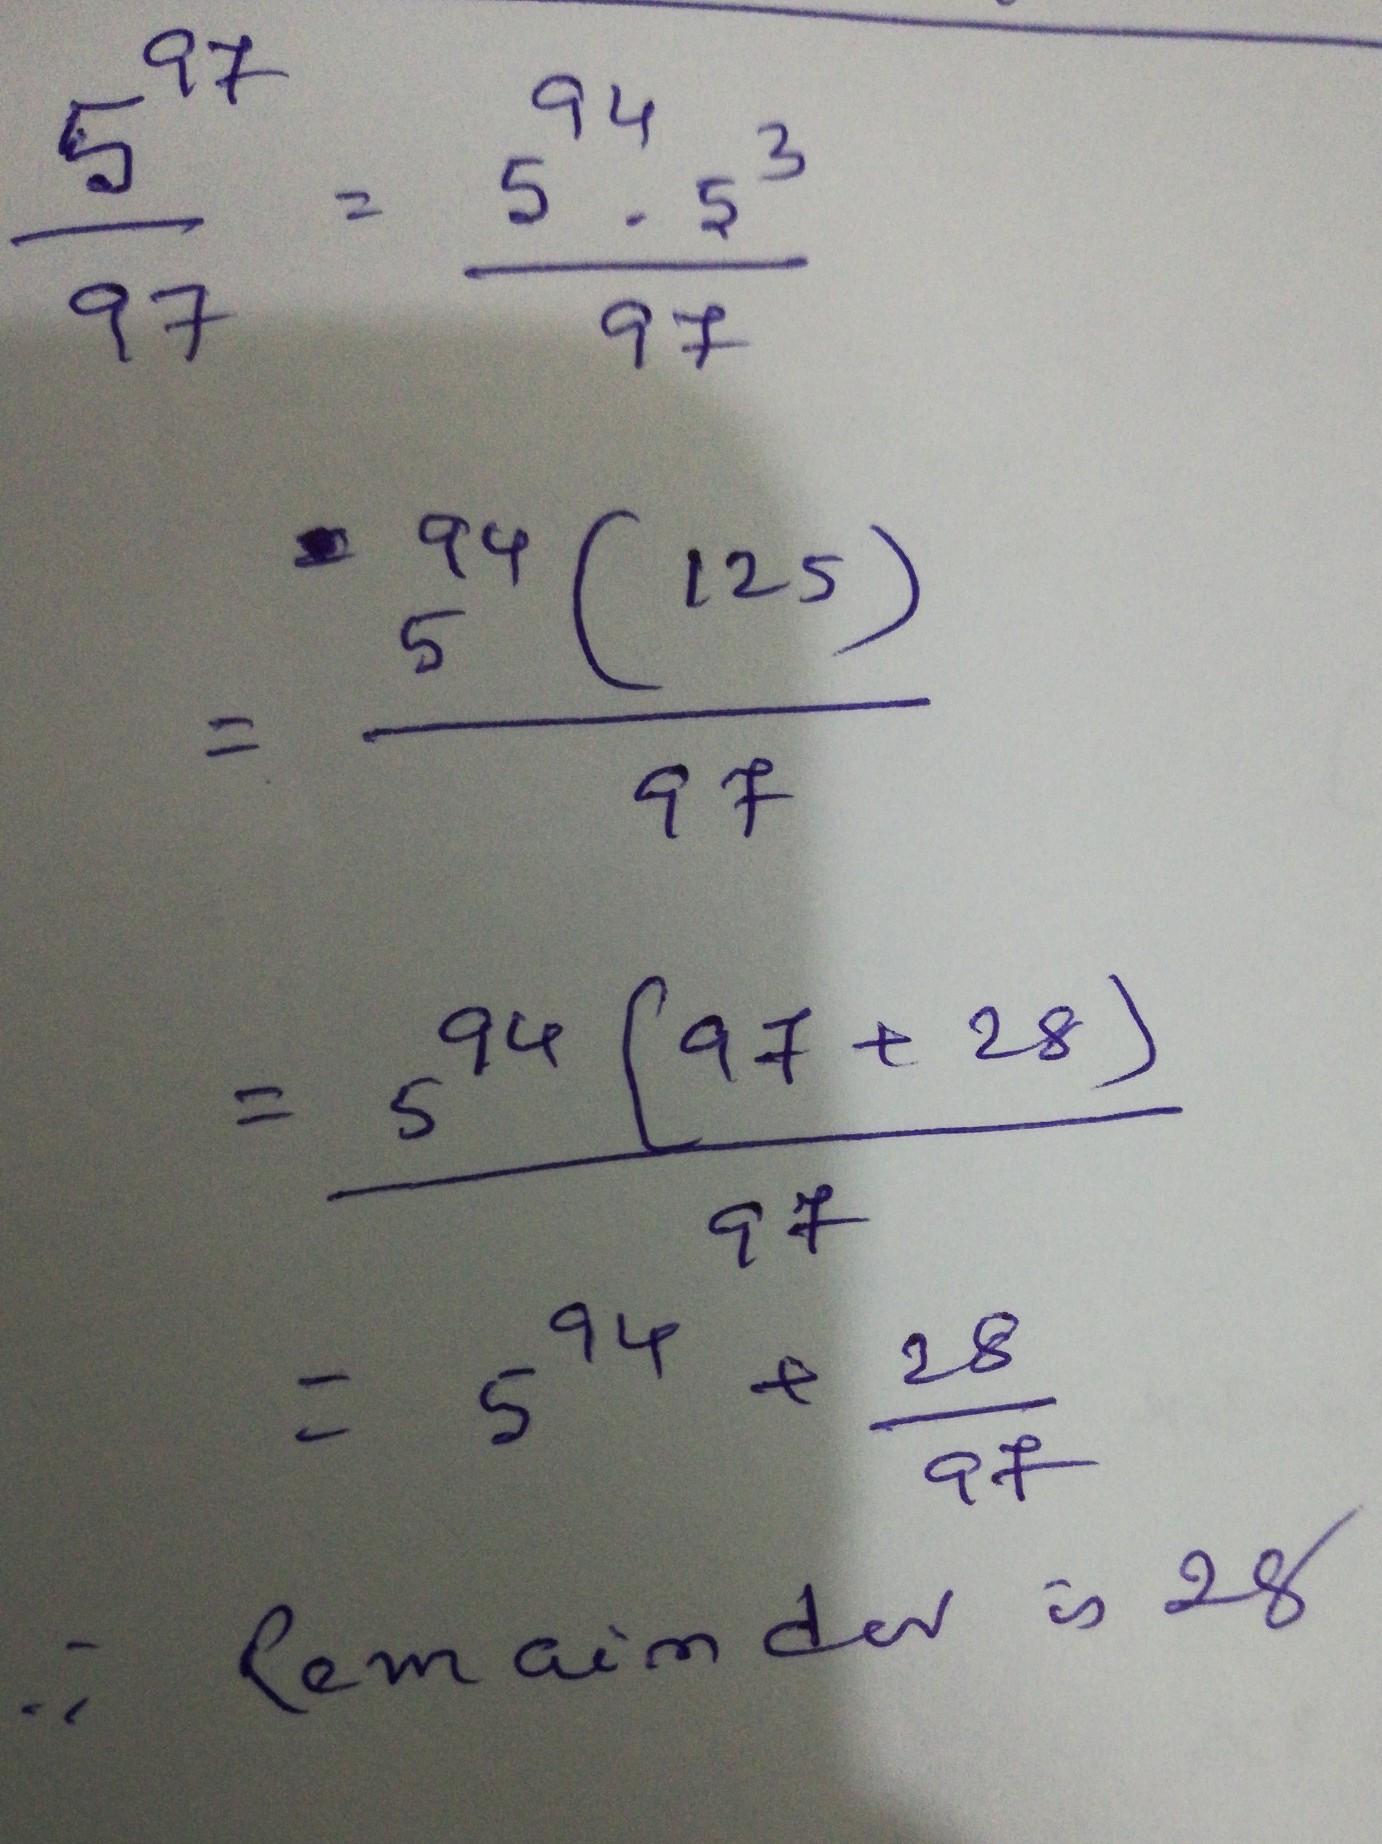 5^97 / 97 = 5^94 . 5^3 / 97
= 5^94 (125) / 97
= 5^94 (97 + 28) / 97
= 5^94 + 28 / 97
∴ Remainder is 28